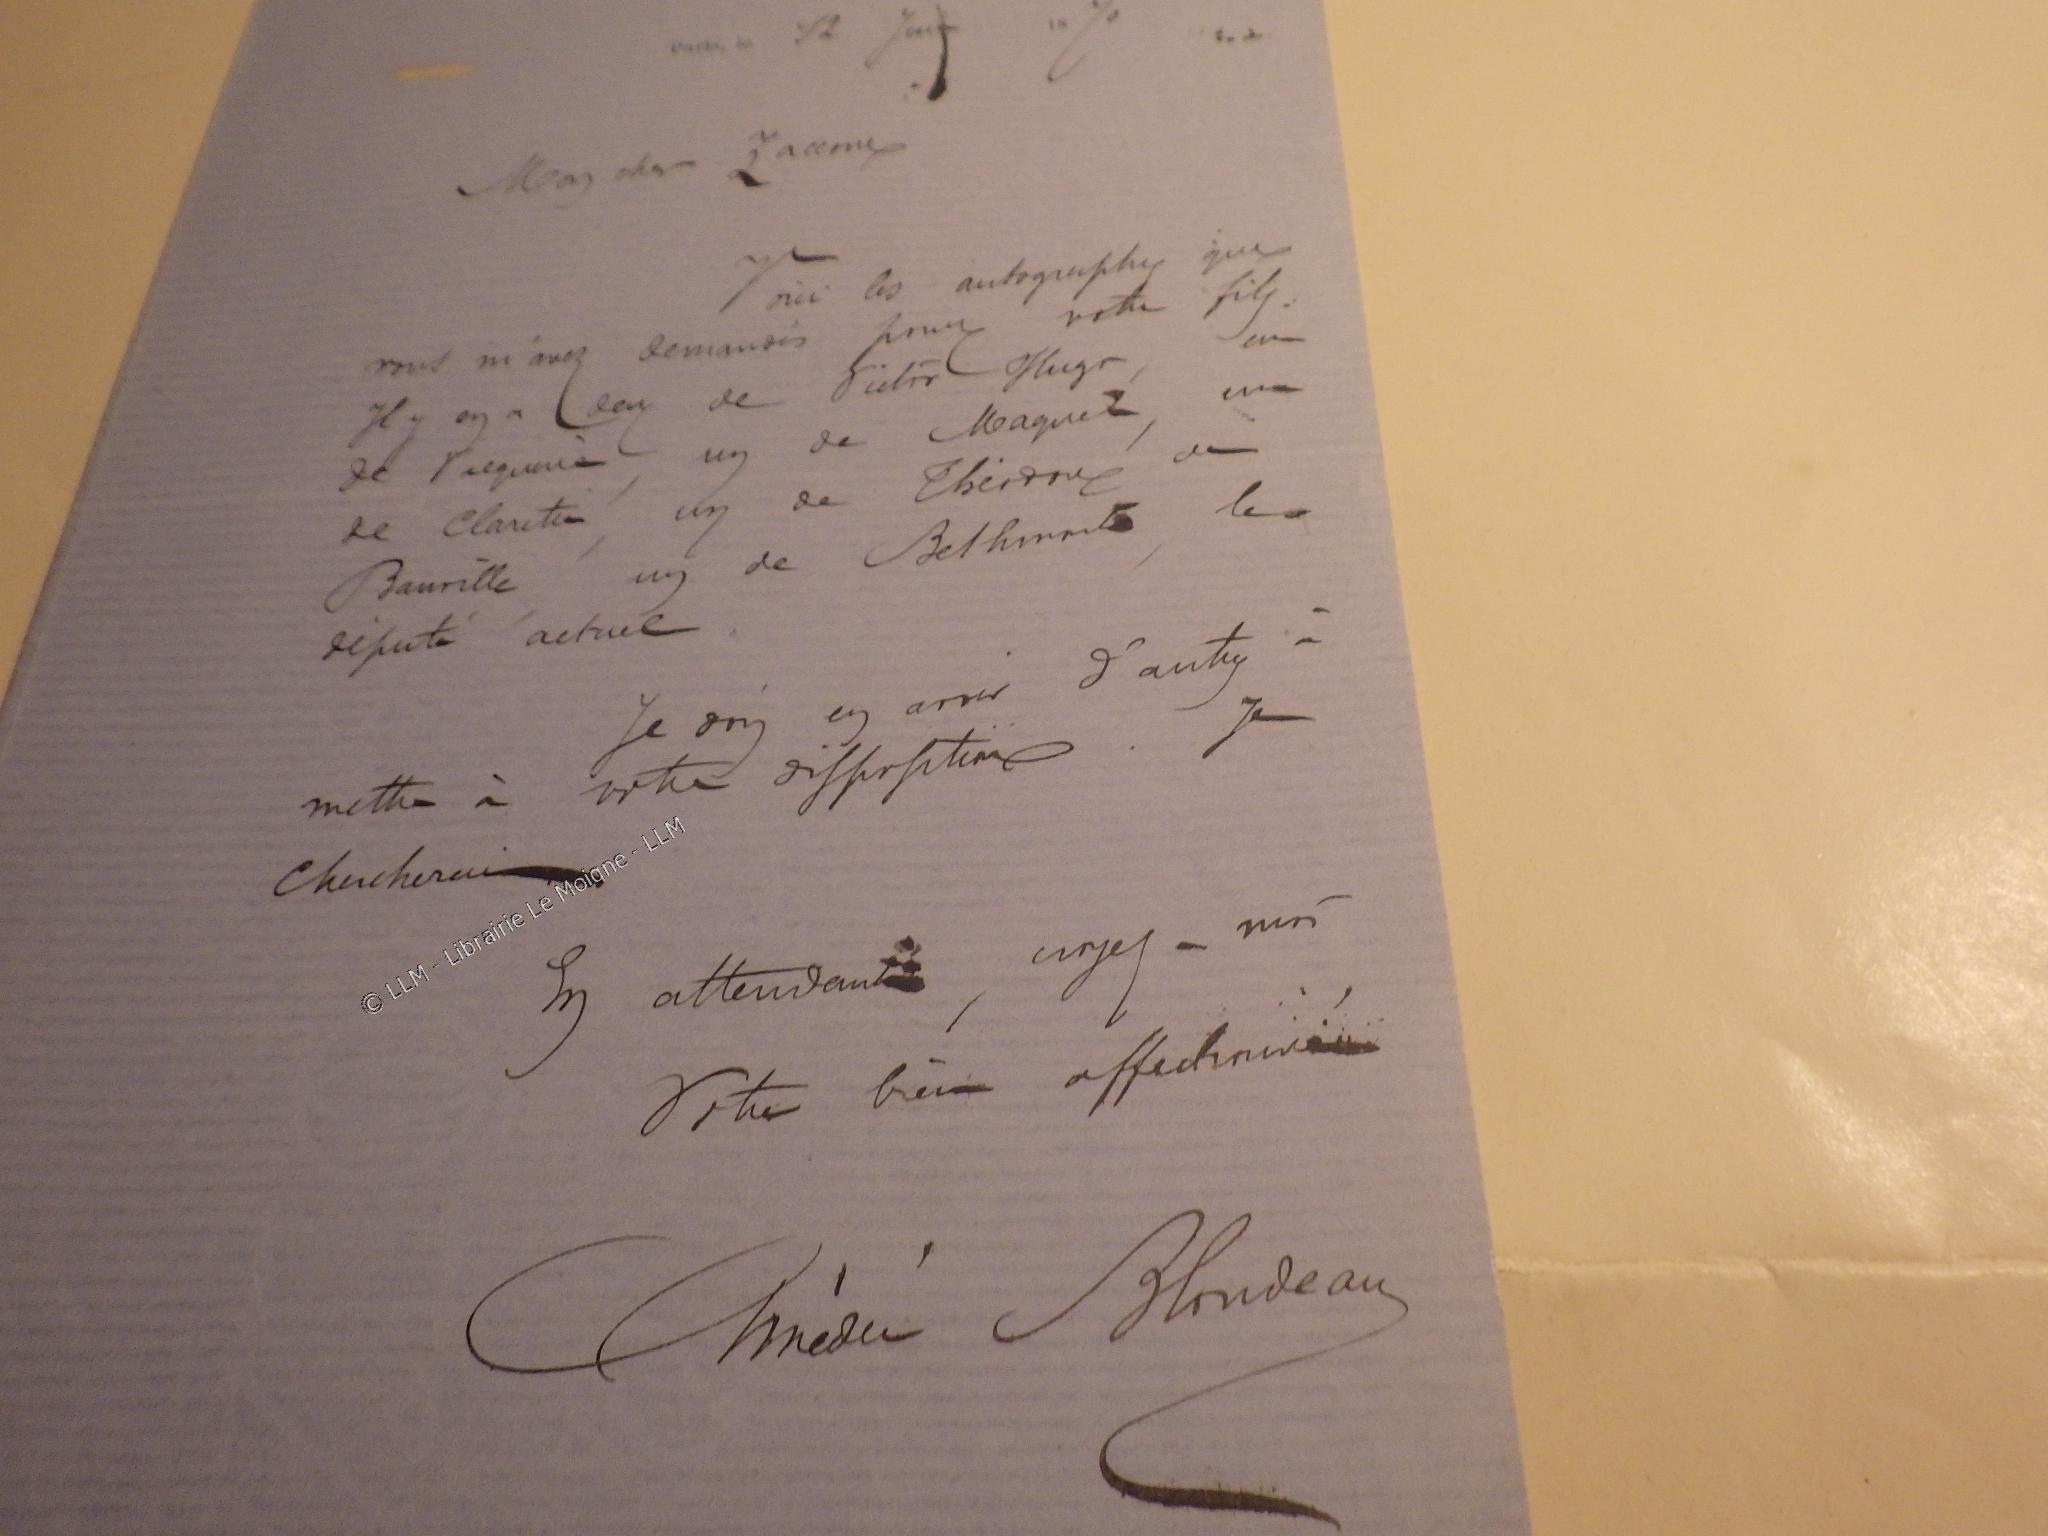 Paris, le 12 Juin 1870
Mon cher Zaccone
Voici les autographes que
vous m'avez demandés pour votre fils.
Il y en a deux de Victor Hugo, un
de Vacquerie, un de Maquet, un
de Claretie, un de Théodore de
Banville, un de Bethmont, le
député actuel.
Je dois en avoir d'autres à
mettre à votre disposition. Je
chercherai
En attendant, croyez-moi
Votre bien affectionné
Amédée Blondeau
© LLM - Librairie Le Moigne - LLM